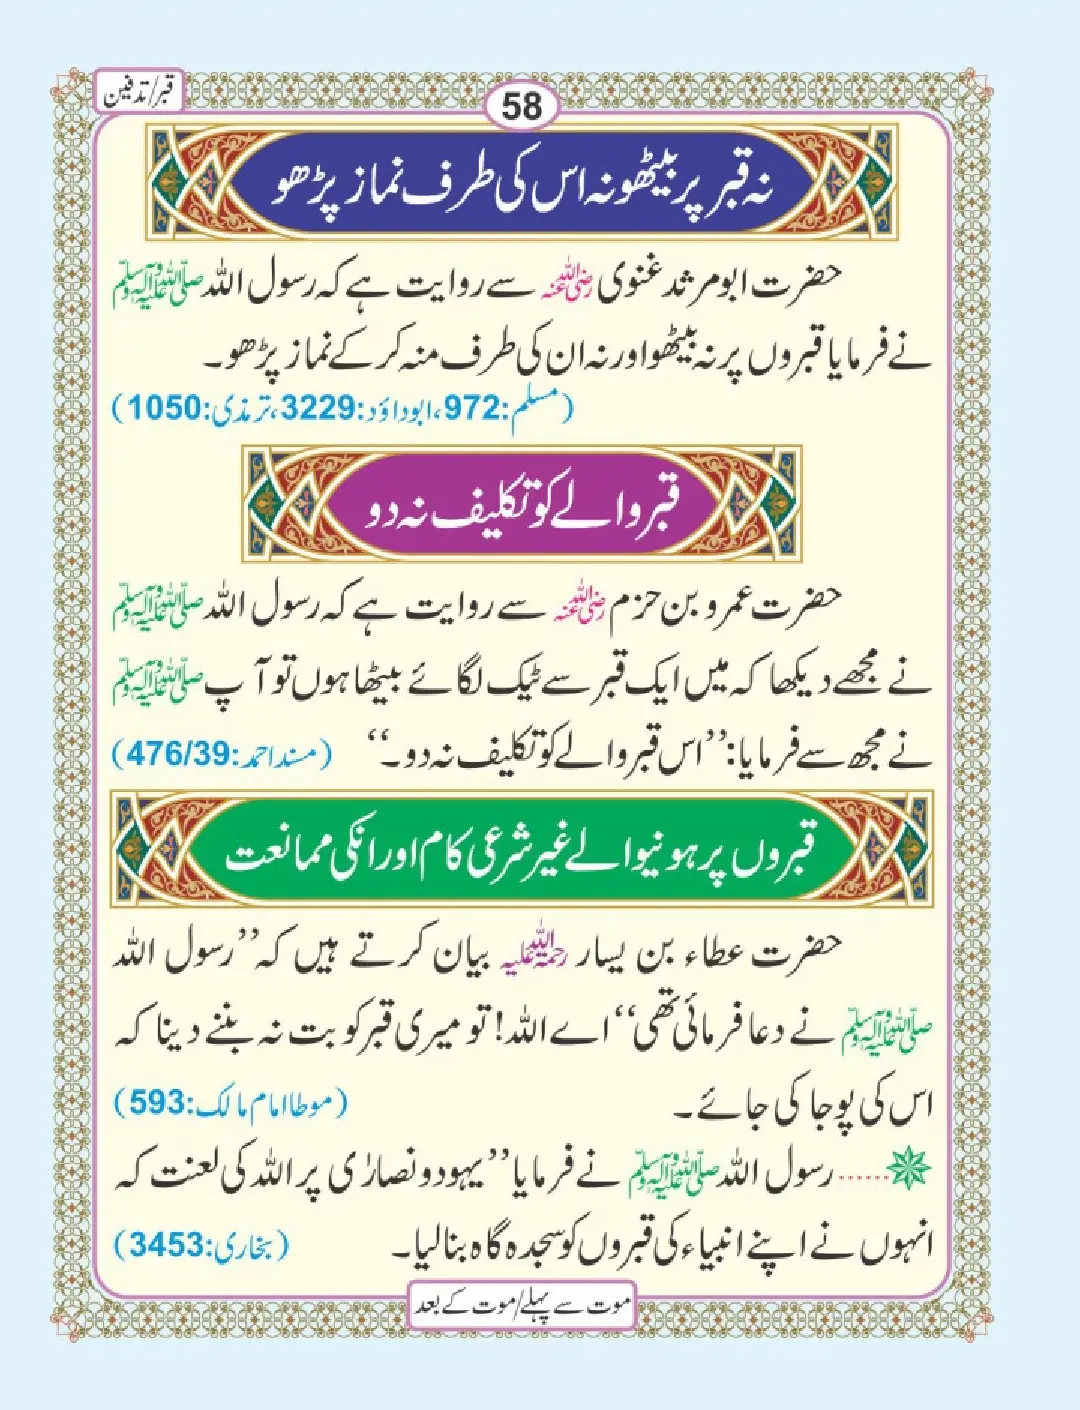 قبر/تدفین
58
نہ قبر پر بیٹھو نہ اس کی طرف نماز پڑھو
حضرت ابو مرثد غنوی رضی اللہ عنہ سے روایت ہے کہ رسول اللہ صلی اللہ علیہ وآلہ وسلم
نے فرمایا قبروں پر نہ بیٹھو اور نہ ان کی طرف منہ کر کے نماز پڑھو۔
(مسلم:972، ابوداؤد:3229، ترمذی:1050)
قبر والے کو تکلیف نہ دو
حضرت عمرو بن حزم رضی اللہ عنہ سے روایت ہے کہ رسول اللہ صلی اللہ علیہ وآلہ وسلم
نے مجھے دیکھا کہ میں ایک قبر سے ٹیک لگائے بیٹھا ہوں تو آپ صلی اللہ علیہ وآلہ وسلم
نے مجھ سے فرمایا: ’’اس قبر والے کو تکلیف نہ دو۔‘‘ (مسند احمد:476/39)
قبروں پر ہونیوالے غیر شرعی کام اور انکی ممانعت
حضرت عطاء بن یسار رحمۃ اللہ علیہ بیان کرتے ہیں کہ ’’رسول اللہ
صلی اللہ علیہ وآلہ وسلم نے دعا فرمائی تھی‘‘ اے اللہ! تو میری قبر کو بت نہ بننے دینا کہ
اس کی پوجا کی جائے۔ (موطا امام مالک:593)
......رسول اللہ صلی اللہ علیہ وآلہ وسلم نے فرمایا ’’یہود و نصارٰی پر اللہ کی لعنت کہ
انہوں نے اپنے انبیاء کی قبروں کو سجدہ گاہ بنا لیا۔ (بخاری:3453)
موت سے پہلے/موت کے بعد